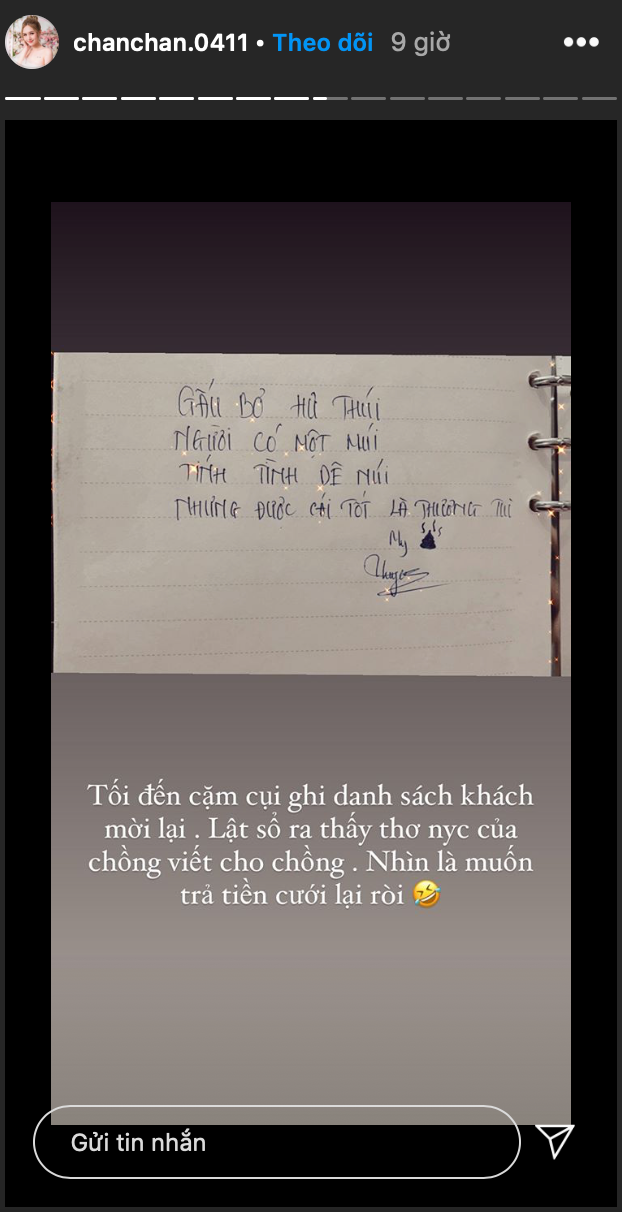 chanchan.0411 • Theo dõi 9 giờ
GẤU BỞ HƯ THÚI
NGƯỜI CÓ MỘT MÚI
TÍNH TÌNH DÊ NÚI
NHƯNG ĐƯỢC CÁI TỐT LÀ THƯƠNG TUI
My
Tối đến cặm cụi ghi danh sách khách
mời lại . Lật sổ ra thấy thơ nyc của
chồng viết cho chồng . Nhìn là muốn
trả tiền cưới lại ròi 🤣
Gửi tin nhắn